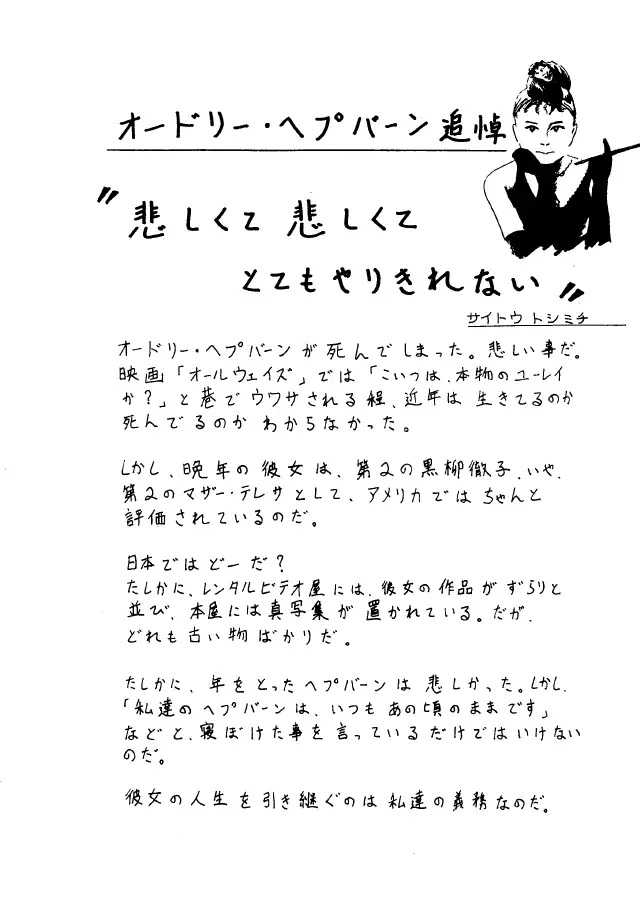 オードリー・ヘプバーン追悼
〃悲しくて 悲しくて
とてもやりきれない〃
サイトウ トシミチ
オードリー・ヘプバーンが死んでしまった。悲しい事だ。
映画「オールウェイズ」では「こいつは、本物のユーレイ
か?」と巷でウワサされる程、近年は生きてるのか
死んでるのかわからなかった。
しかし、晩年の彼女は、第2の黒柳徹子、いや、
第2のマザー・テレサとして、アメリカではちゃんと
評価されているのだ。
日本ではどーだ?
たしかに、レンタルビデオ屋には、彼女の作品がずらりと
並び、本屋には真写集が置かれている。だが、
どれも古い物ばかりだ。
たしかに、年をとったヘプバーンは悲しかった。しかし、
「私達のヘプバーンは、いつもあの頃のままです」
などと、寝ぼけた事を言っているだけではいけない
のだ。
彼女の人生を引き継ぐのは私達の義務なのだ。